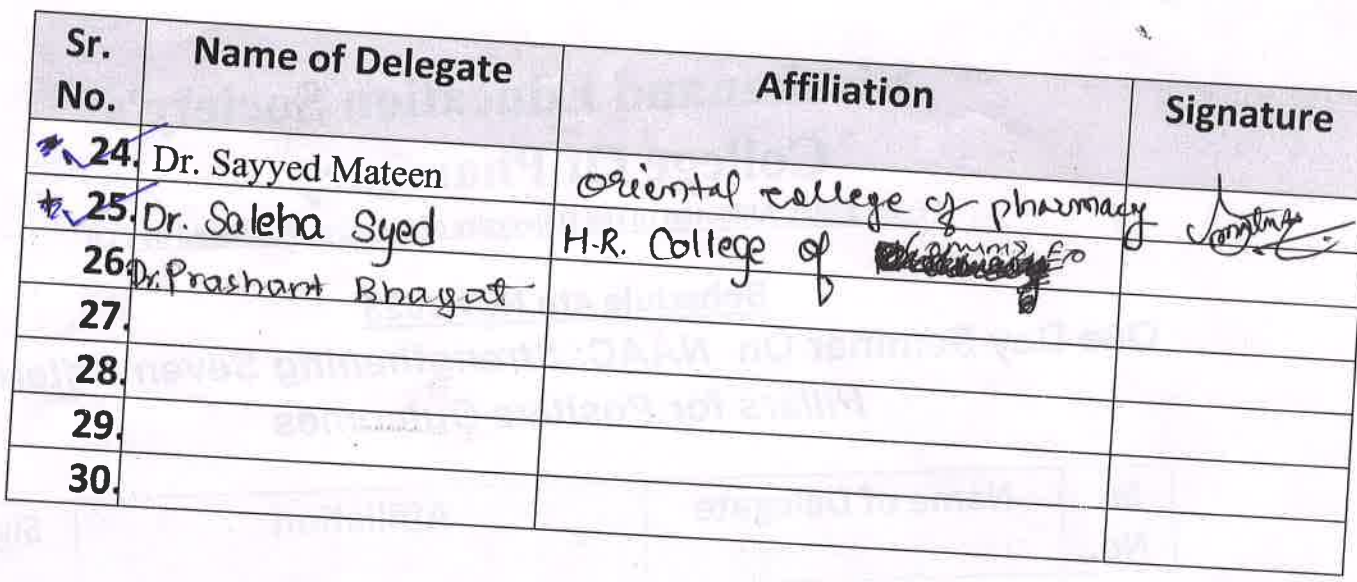 Sr. No. Name of Delegate Affiliation Signature
24. Dr. Sayyed Mateen Oriental college of pharmacy
25. Dr. Saleha Syed H.R. College of
26. Dr. Prashant Bhagat
27.
28.
29.
30.